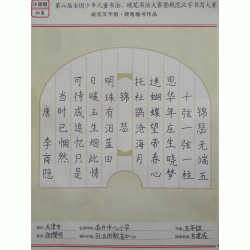 第六届全国少年儿童书法、硬笔书法大赛暨规范汉字书写大赛
规范汉字组·硬笔楷书作品
锦瑟无端五
十弦一弦一柱
思华年庄生晓梦
迷蝴蝶望帝春心
托杜鹃沧海月
锦瑟
明珠有泪蓝田
日暖玉生烟此情
可待成追忆只是
当时已惘然
唐 李商隐
天津市 中心小学 五年级